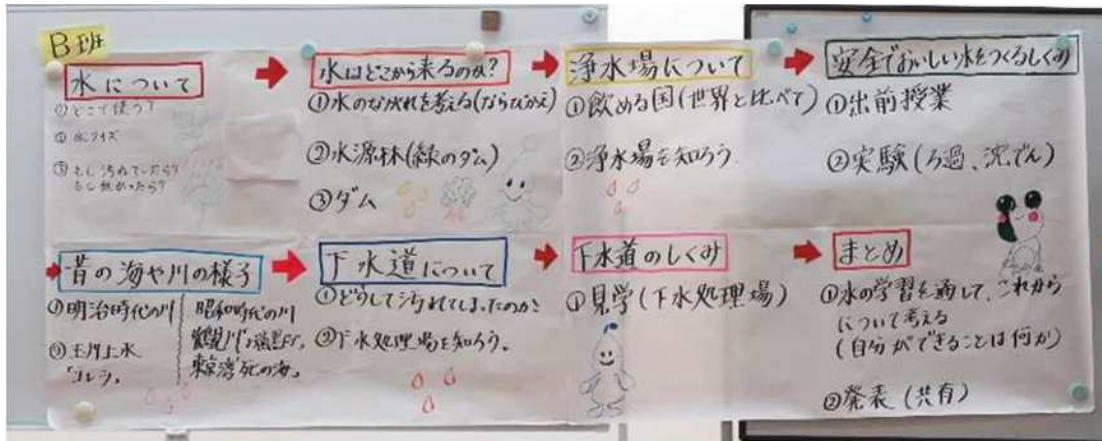 B班
水について
①どこで使う?
②水クイズ
③もし汚れていたら?
もし無かったら?
水はどこから来るのか?
①水のながれを考える(ならびかえ)
②水源林(緑のダム)
③ダム
浄水場について
①飲める国(世界と比べて)
②浄水場を知ろう
安全でおいしい水をつくるしくみ
①出前授業
②実験(ろ過、沈でん)
昔の海や川の様子
①明治時代の川
②玉川上水
「コレラ」
昭和時代の川
東京湾「死の海」
下水道について
①どうして汚れてしまったのか
②下水処理場を知ろう。
下水道のしくみ
①見学(下水処理場)
まとめ
①水の学習を通して、これから
について考える
(自分ができることは何か)
②発表(共有)